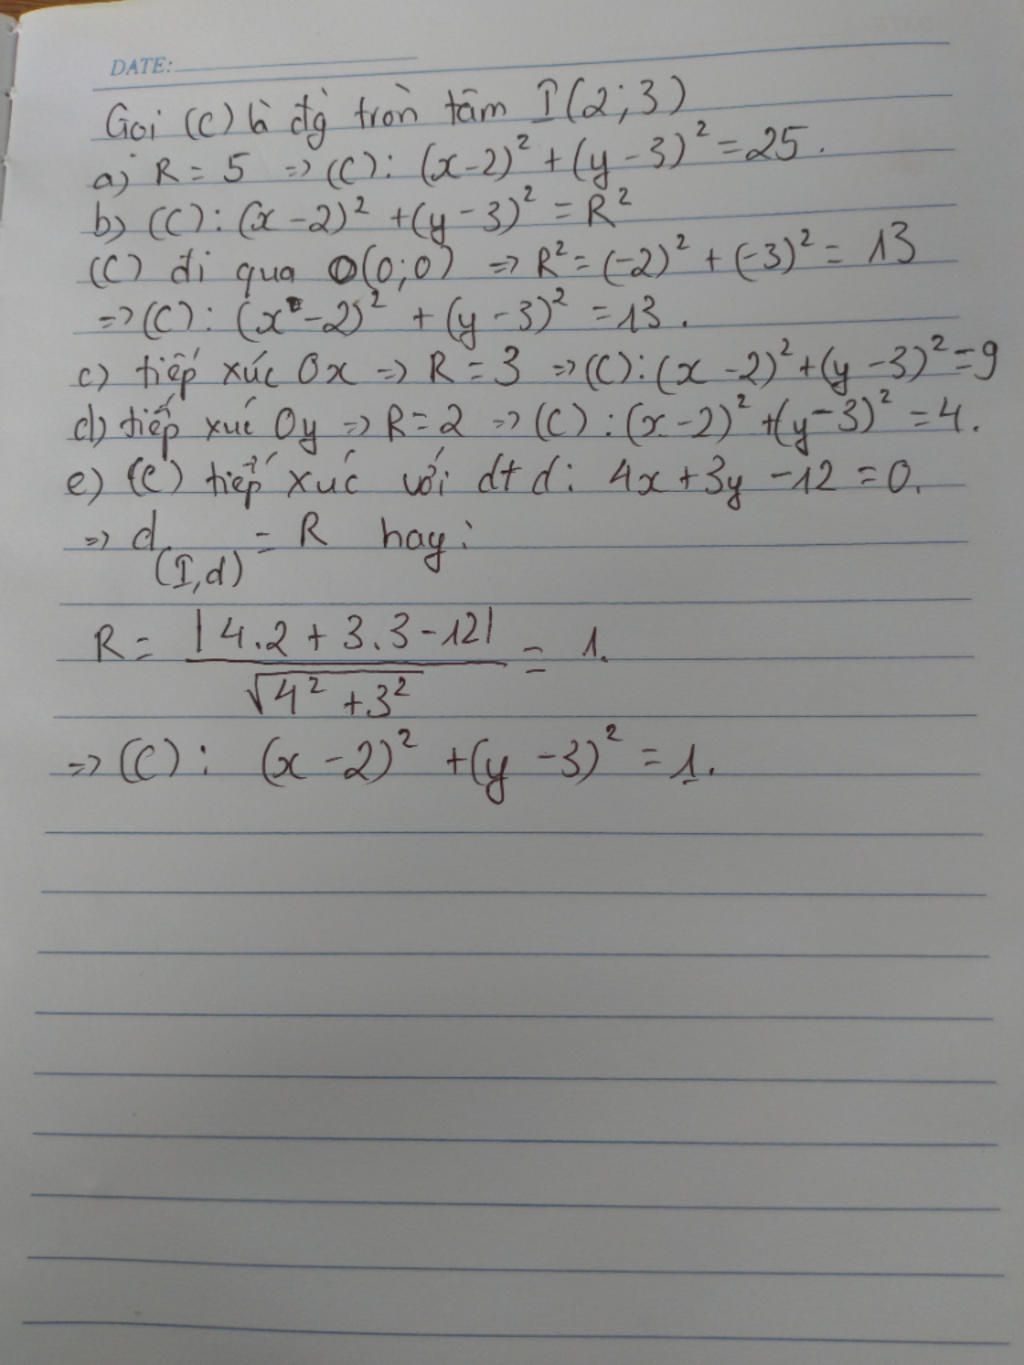 DATE:
Gọi (C) là đg tròn tâm I(2;3)
a) R = 5 => (C): (x-2)² + (y-3)² = 25.
b) (C): (x-2)² + (y-3)² = R²
(C) đi qua O(0;0) => R² = (-2)² + (-3)² = 13
=> (C): (x-2)² + (y-3)² = 13.
c) tiếp xúc Ox => R = 3 => (C): (x-2)² + (y-3)² = 9
d) tiếp xúc Oy => R = 2 => (C): (x-2)² + (y-3)² = 4.
e) (C) tiếp xúc với đt d: 4x + 3y - 12 = 0.
=> d(I,d) = R hay:
R = |4.2 + 3.3 - 12| / √4² + 3² = 1.
=> (C): (x-2)² + (y-3)² = 1.